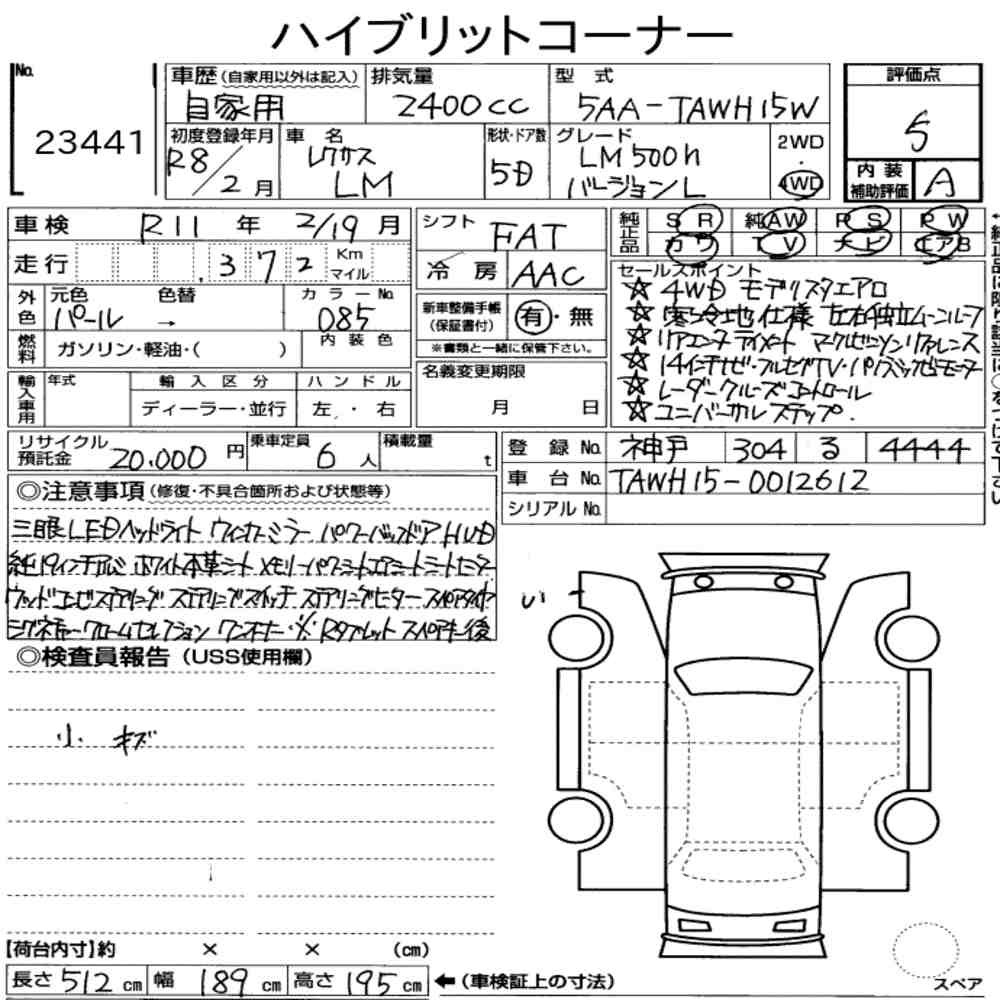 ハイブリットコーナー
No. 23441
車歴(自家用以外は記入) 自家用
排気量 2400cc
型式 5AA-TAWH15W
評価点 5
初度登録年月 R8/2月
車名 レクサス LM
形状・ドア数 5D
グレード LM500h バージョンL
2WD・4WD
内装補助評価 A
車検 R11年 2/19月
シフト FAT
純正品 SR 純AW PS PW
カワ TV ナビ エアB
走行 372 Km マイル
冷房 AAC
外色 元色 パール 色替 → カラーNo. 085
内装色
新車整備手帳(保証書付) 有・無
※書類と一緒に保管下さい。
燃料 ガソリン・軽油・( )
セールスポイント
☆4WD モデリスタエアロ
☆寒冷地仕様 左右独立ムーンルーフ
☆リアエンターテイメント マークレビンソンリファレンス
☆14インチナビ・フルセグTV・パノラミックビューモニター
☆レーダークルーズコントロール
☆ユニバーサルステップ.
輸入車用 年式 輸入区分 ハンドル
ディーラー・並行 左・右
名義変更期限 月 日
リサイクル預託金 20.000円
乗車定員 6人
積載量 t
登録No. 神戸 304 る 4444
車台No. TAWH15-0012612
シリアルNo.
◎注意事項(修復・不具合箇所および状態等)
三眼LEDヘッドライト ウィンカーミラー パワーバックドア HUD
純19インチアルミ ホワイト本革シート メモリーパワーシート エアーシート シートヒーター
ウッドコンビステアリング ステアリングスイッチ ステアリングヒーター スペアタイヤ
シグネチャークロームセレクション ワンオーナー ※Rタブレット スペアキー後
◎検査員報告(USS使用欄)
小キズ
【荷台内寸】約 × × (cm)
長さ512cm 幅189cm 高さ195cm ←(車検証上の寸法)
スペア